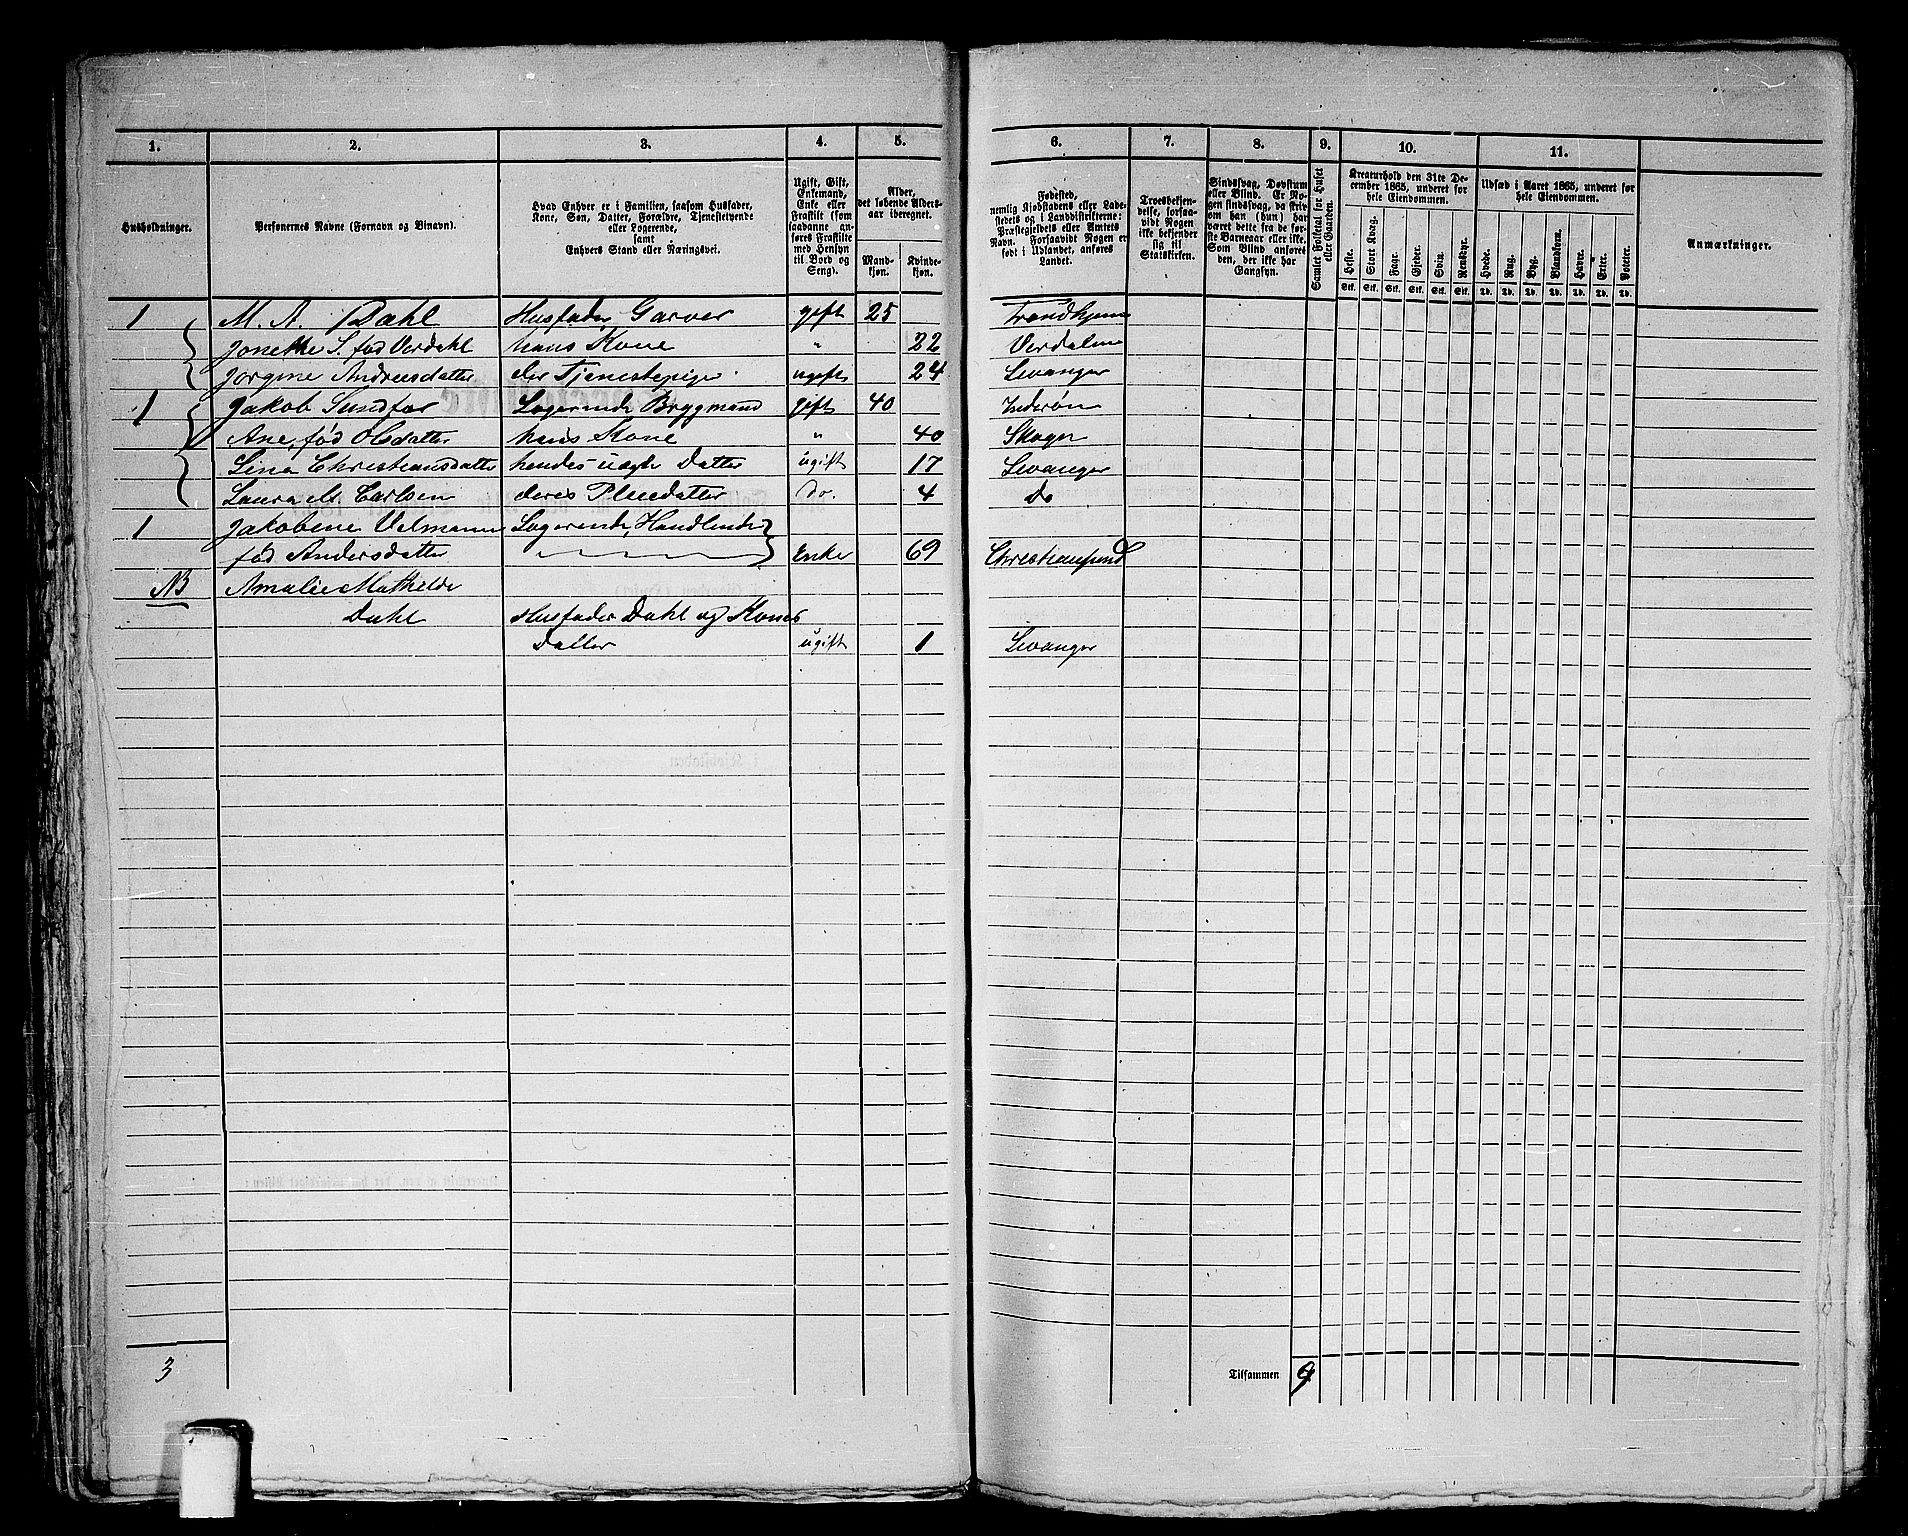 1. 2. 3. 4. 5. 6. 7. 8. 9. 10. 11.
Husholdninger.
Personernes Navne (Fornavn og Binavn).
Hvad Enhver er i Familien, saasom Husfader,
Kone, Søn, Datter, Forældre, Tjenestetyende
eller Logerende,
samt
Enhvers Stand eller Næringsvei.
Ugift, Gift,
Enkemand,
Enke eller
Fraskilt (som
saadanne an-
føres Fraskilte
med Hensyn
til Bord og
Seng).
Alder,
det løbende Alders-
aar iberegnet.
Mand-
kjøn.
Kvinde-
kjøn.
Fødested,
nemlig Kjøbstadens eller Lade-
stedets og i Landdistrikterne:
Præstegjeldets eller Amtets
Navn. Forsaavidt Nogen er
født i Udlandet, anføres
Landet.
Troesbekjen-
delse, forsaa-
vidt Nogen
ikke bekjender
sig til
Statskirken.
Sindssvag, Døvstum
eller Blind. Er No-
gen sindssvag, da skriv
om han (hun) har
været dette fra de før-
ste Barneaar eller ikke.
Som Blind anføres
den, der ikke har
Gangsyn.
Samlet Folketal for Huset
eller Gaarden.
Kreaturhold den 31te De-
cember 1865, underet for
hele Eiendommen.
Heste. Stort Kvæg. Faar. Gjeder. Svin. Rensdyr.
Stk. Stk. Stk. Stk. Stk. Stk.
Udsæd i Aaret 1865, underet for
hele Eiendommen.
Hvede. Rug. Byg. Blandkorn. Havre. Erter. Poteter.
Td. Td. Td. Td. Td. Td. Td.
Anmærkninger.
1 M. A. Dahl Husfader, Garver gift 25 Trondhjem
Jonette S. fød Verdahl hans Kone " 22 Verdalen
Jørgine Andreasdatter der Tjenestepige ugift 24 Levanger
1 Jakob Sundfær Logerende Bryggmand gift 40 Inderøn
Ane, fød Olsdatter hans Kone " 40 Skogn
Lina Christiansdatter hendes uægte Datter ugift 17 Levanger
Laura M. Carlsen deres Pleiedatter Do. 4 Do
1 Jakobene Velmann Logerende, Handlende
fød Andersdatter Enke 69 Christiansund
NB Amalie Mathilde
Dahl Husfader Dahl og Kones
Datter ugift 1 Levanger
3
Tilsammen 9